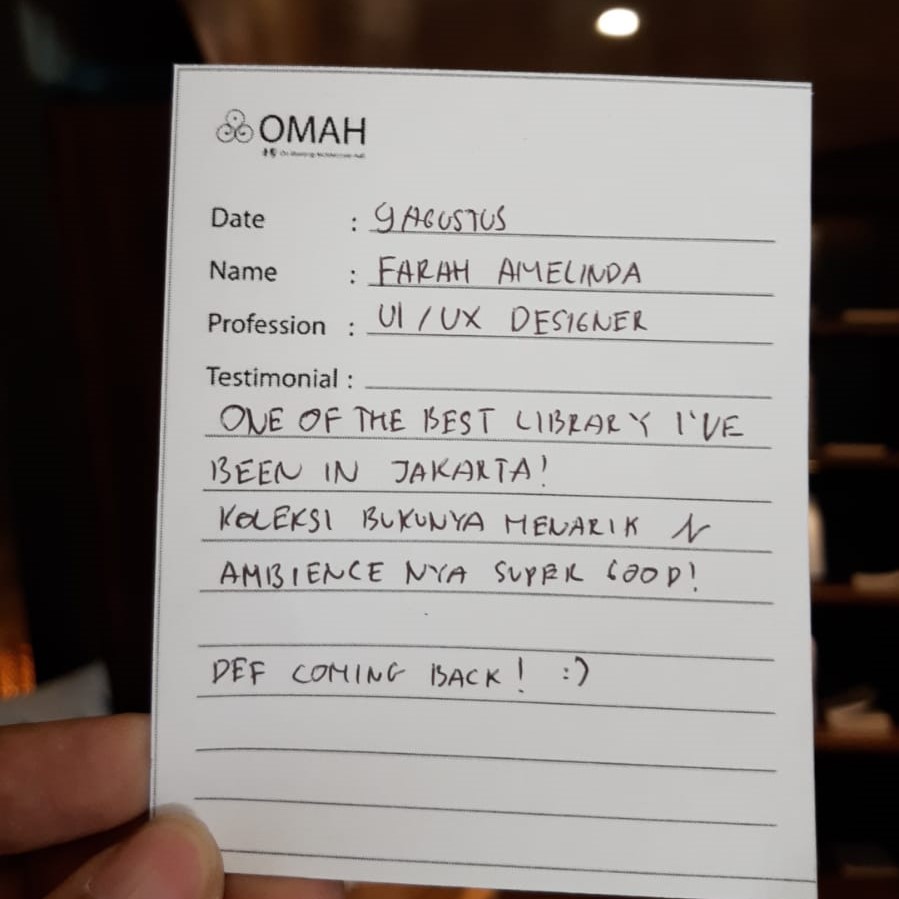 OMAH
Date : 9 AGUSTUS
Name : FARAH AMELINDA
Profession : UI / UX DESIGNER
Testimonial :
ONE OF THE BEST LIBRARY I'VE
BEEN IN JAKARTA!
KOLEKSI BUKUNYA MENARIK N
AMBIENCE NYA SUPER GOOD!
DEF COMING BACK! :)